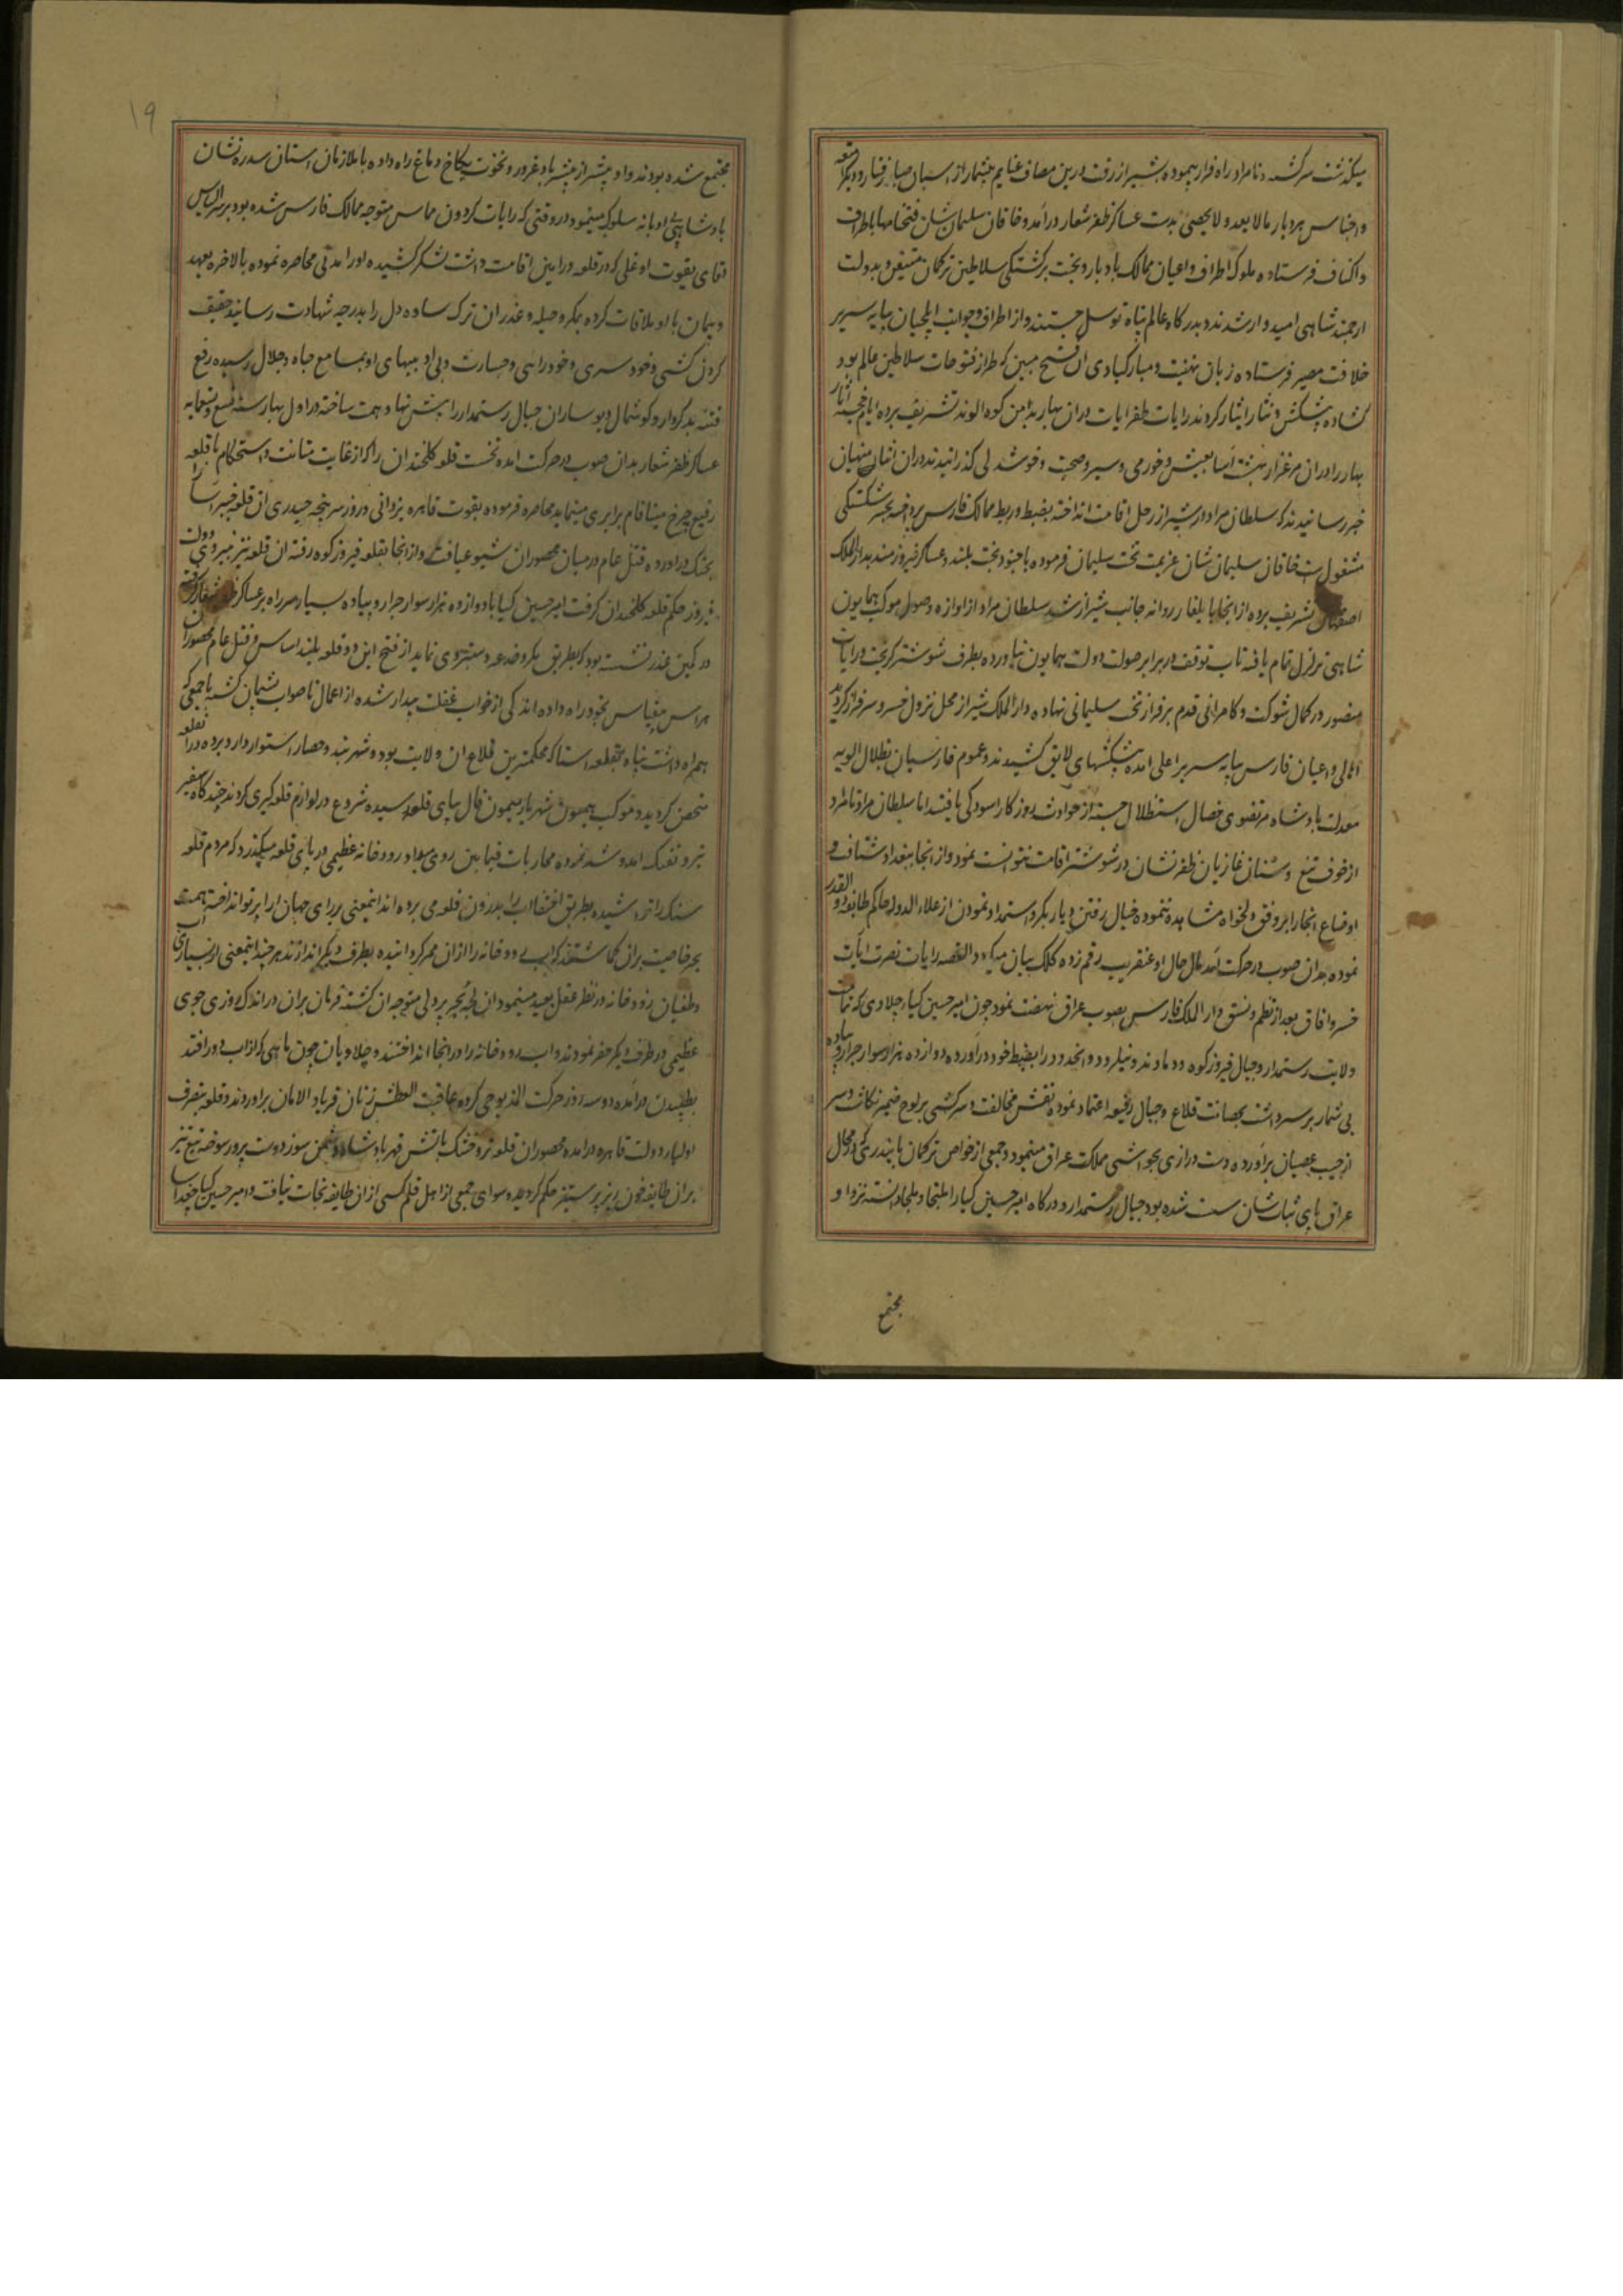 میکذشت سرکشته و نامراد راه فرار پیموده بشیراز رفت درین مصاف غنایم بیشمار از اسبان صبا رفتار و دیگر امتعه
و اجناس بردبار مالا یعد و لا یحصی بدست عساکر ظفر شعار درآمد و خاقان سلیمان شان فتحنامها باطراف
و اکناف فرستاده ملوک اطراف و اعیان ممالک بادبار و بخت برکشتکی سلاطین ترکمان متیقن و بدولت
ارجمند شاهی امیدوار شدند و بدرکاه عالم پناه توسل جستند و از اطراف و جوانب ایلچیان بپایه سریر
خلافت مصیر فرستاده زبان تهنیت و مبارکبادی آن فتح مبین که طراز فتوحات سلاطین عالم بود
کشاده پیشکش و نثار ایثار کردند رایات ظفر ایات دران بهار بدامن کوه الوند تشریف برده ایام خجسته آثار
بهار را دران مرغزار بهشت آسا بعیش و خرمی و سیر و صحبت و خوشدلی کذرانیدند دران اثنا منهیان
خبر رسانیدند که سلطان مراد در شیراز رحل اقامت انداخته بضبط و ربط ممالک فارس پرداخته بجبر شکستکی
مشغول است خاقان سلیمان شان عزیمت تخت سلیمان فرموده با جنود بخت بلند و عساکر فیروزمند بدار الملک
اصفهان تشریف برده از انجا بایلغار روانه جانب شیراز شد سلطان مراد از اوازه وصول موکب همایون
شاهی تزلزل تمام یافته تاب توقف در برابر صولت دولت همایون نیاورده بطرف شوشتر کریخت و رایات
منصور در کمال شوکت و کامرانی قدم بر فراز تخت سلیمانی نهاده دار الملک شیراز محل نزول خسرو سرفراز کردید
اهالی و اعیان فارس بپایه سریر اعلی امده پیشکشهای لایق کشیدند و عموم فارسیان بظلال الویه
معدلت پادشاه مرتضوی خصال استظلال جسته از حوادث روزکار اسودکی یافتند اما سلطان مراد نامراد
از خوف تیغ و سنان غازیان ظفر نشان در شوشتر اقامت نتوانست نمود و از انجا ببغداد شتافت و
اوضاع انجا را بر وفق دلخواه مشاهده ننموده خیال رفتن دیار بکر و استمداد نمودن از علاء الدوله حاکم طایفه ذو القدر
نموده بدان صوب در حرکت آمد مال حال او عنقریب رقم زده کلک بیان میکردد القصه رایات نصرت ایات
خسرو افاق بعد از نظم و نسق دار الملک فارس بصوب عراق نهضت نمود چون امیر حسین کیاء چلاوی که تمامت
ولایت رستمدار و جبال فیروزکوه و دماوند و هبلرود و انحدود را بضبط خود دراورده دوازده هزار سوار جرار و پیاده
بی شمار بر سر داشت بحصانت قلاع و جبال رفیعه اعتماد نموده نقش مخالفت و سرکشی بر لوح ضمیر نکاشت و سر
از جیب عصیان براورده دست درازی بحواشی مملکت عراق مینمود و جمعی از خواص ترکمان بایندر که در محال
عراق پای ثبات شان سست شده بود جبال رستمدار و درکاه امیر حسین کیا را ملتجا و ملجا دانسته نزد او
مجتمع
۱۹
مجتمع شده بودند و او بیشتر از پیشتر باد غرور و نخوت بکاخ دماغ راه داده با ملازمان استان سدره نشان
پادشاهی بی ادبانه سلوک مینمود در وقتی که رایات کردون مماس متوجه ممالک فارس شده بود بر سر الیاس
بیک ایقوت اوغلی که در قلعه ورامین اقامت داشت لشکر کشیده او را مدتی محاصره نموده بالاخره بعهد
و پیمان با او ملاقات کرده بمکر و حیله و غدر ان ترک ساده دل را بدرجه شهادت رسانید حقیقت
کردن کشی و خود سری و خود رایی و جسارت و بی ادبیهای او بمسامع جاه و جلال رسیده رفع
فتنه بدکردار و کوشمال دیوساران جبال رستمدار را پیش نهاد همت ساخته در اول بهار سنه تسع و تسعمایه
عساکر ظفر شعار بدان صوب در حرکت امده نخست قلعه کلخندان را که از غایت متانت و استحکام با قلعه
رفیع چرخ مینا فام برابری مینماید محاصره فرموده بقوت قاهره یزدانی دو روزه سرپنجه حیدری ان قلعه خیبر اسا را
بچنک دراورده قتل عام درمیان محصوران شیوع یافت و از انجا بقلعه فیروزکوه رفته ان قلعه نیز بنیروی دولت
فیروز حکم قلعه کلخندان کرفت امیر حسین کیا با دوازده هزار سوار جرار و پیاده بسیار سر راه بر عساکر ظفر شعار کرفته
در کمین غدر نشسته بود که بطریق مکر و خدعه دستبردی نماید از فتح این دو قلعه بلند اساس و قتل عام محصوران
هراس بیقیاس بخود راه داده اندکی از خواب غفلت بیدار شده از اعمال ناصواب پشیمان کشته با جمعی که
همراه داشت پناه بقلعه استا که محکمترین قلاع ان ولایت بود و شهر بند و حصار استوار دارد برده در ان قلعه
متحصن کردید و موکب همیون شهریار میمون فال بپای قلعه رسیده شروع در لوازم قلعه کیری کردند چند کاه سفیر
تیر و تفنک امد و شد نموده محاربات فیما بین روی میداد رودخانه عظیمی در پای قلعه میکذرد که مردم قلعه
سنک را تراشیده بطریق اختفا اب را بدرون قلعه می برده اند اینمعنی بر رای جهان ارا پرتو انداخته همت
بحر خاصیت بران کماشتند که اب رودخانه را از ان ممر کردانیده بطرف دیکر اندازند هر چند اینمعنی از بسیاری آب
و طغیان رودخانه در نظر عقل بعید مینمود ان لجه بحر پر دلی متوجه ان کشته فرمان بران در اندک روزی جوی
عظیمی در طرف دیکر حفر نمودند و اب رودخانه را در انجا انداختند و چلاویان چون ماهی که از اب دور افتد
بطپیدن درآمده دو سه روز حرکت المذبوحی کرده عاقبت العطش زنان فریاد الامان براوردند و قلعه بتصرف
اولیاء دولت قاهره درامده محصوران قلعه تر و خشک باتش قهر پادشاه دشمن سوز دوست پرور سوخته تیغ تیز
بران طایفه خون ریز پر ستیز حکم کردیده سوای جمعی از اهل قلم کسی از ان طایفه نجات نیافت و امیر حسین کیا